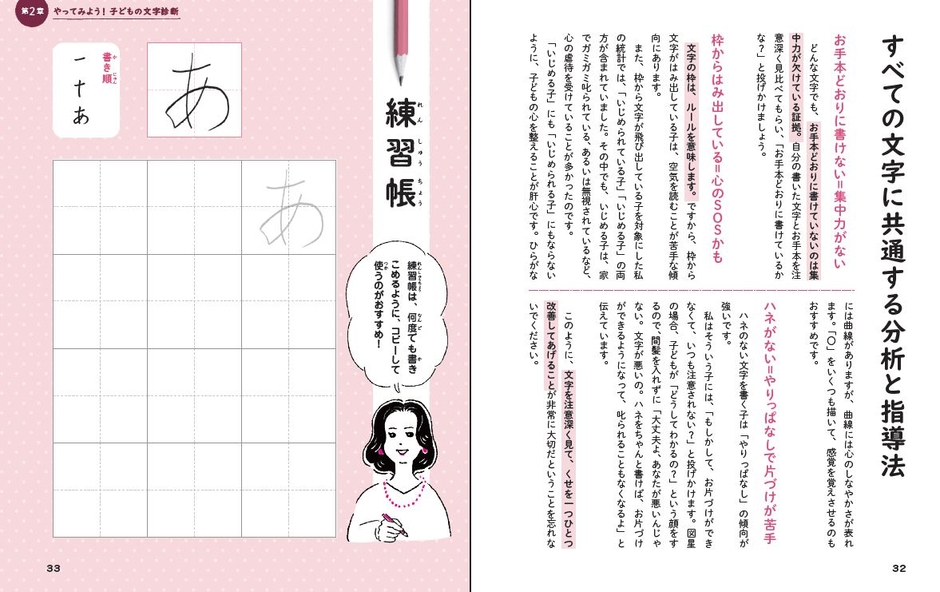 すべての文字に共通する分析と指導法
お手本どおりに書けない＝集中力がない
どんな文字でも、お手本どおりに書けていないのは集
中力が欠けている証拠。自分の書いた文字とお手本を注
意深く見比べてもらい、「お手本どおりに書けているか
な？」と投げかけましょう。
枠からはみ出している＝心のSOSかも
文字の枠は、ルールを意味します。ですから、枠から
文字がはみ出している子は、空気を読むことが苦手な傾
向にあります。
また、枠から文字が飛び出している子を対象にした私
の統計では、「いじめられている子」「いじめる子」の両
方が含まれていました。その中でも、いじめる子は、家
でガミガミ叱られている、あるいは無視されているなど、
心の虐待を受けていることが多かったのです。
「いじめる子」にも「いじめられる子」にもならない
ように、子どもの心を整えることが肝心です。ひらがな
には曲線がありますが、曲線には心のしなやかさが表れ
ます。「〇」をいくつも描いて、感覚を覚えさせるのも
おすすめです。
ハネがない＝やりっぱなしで片づけが苦手
ハネのない文字を書く子は「やりっぱなし」の傾向が
強いです。
私はそういう子には、「もしかして、お片づけができ
なくて、いつも注意されない？」と投げかけます。図星
の場合、子どもが「どうしてわかるの？」という顔をす
るので、間髪を入れずに「大丈夫よ、あなたが悪いんじゃ
ない。文字が悪いの。ハネをちゃんと書けば、お片づけ
ができるようになって、叱られることもなくなるよ」と
伝えています。
このように、文字を注意深く見て、くせを一つひとつ
改善してあげることが非常に大切だということを忘れな
いでください。
32
第2章 やってみよう！子どもの文字診断
練習帳
れんしゅうちょう
練習帳は、何度でも書き
こめるように、コピーして
使うのがおすすめ！
あ
書き順
か じゅん
あ
あ
33